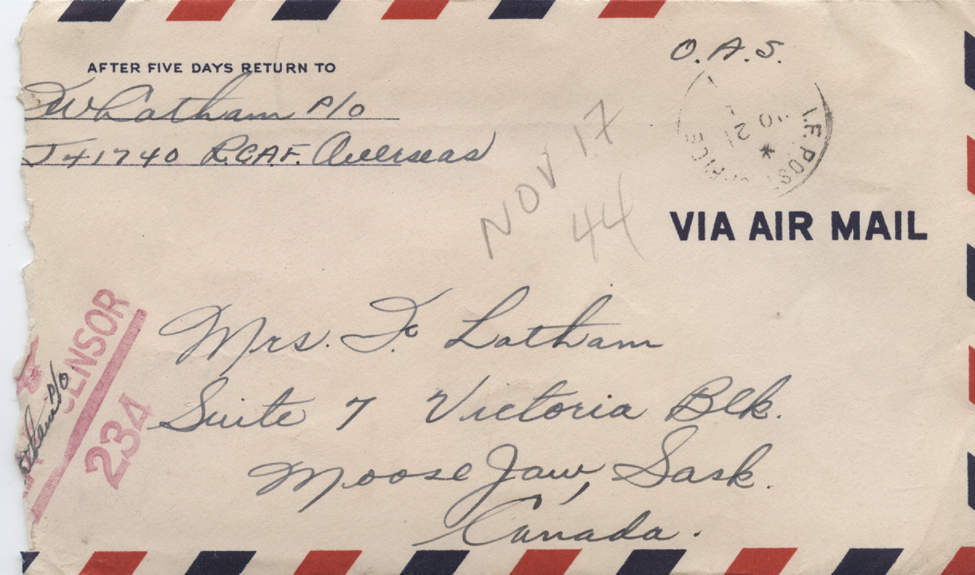 O.A.S.
AFTER FIVE DAYS RETURN TO
Latham P/O
J41740 R.C.A.F. Overseas
I.F. POST OFFICE
NOV 17
44
VIA AIR MAIL
Mrs. F. Latham
Suite 7 Victoria Blk.
Moose Jaw, Sask.
Canada.
CENSOR
234
P/O